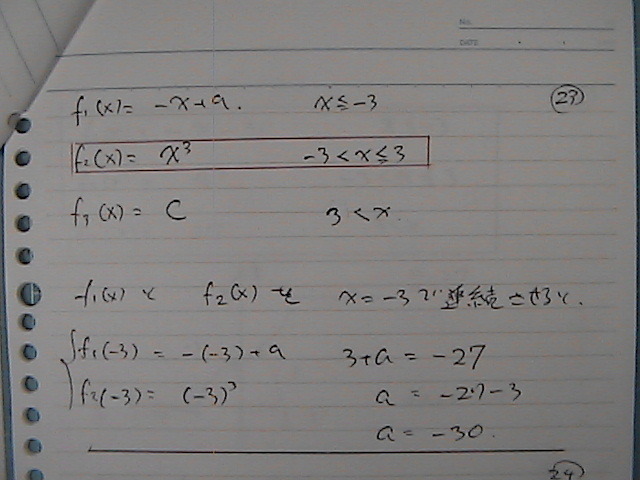 No.
DATE
f₁(x) = -x+a. x≦-3 ㉓
f₂(x) = x³ -3<x≦3
f₃(x) = C 3<x.
f₁(x) と f₂(x) を x=-3 で連続させると.
f₁(-3) = -(-3)+a 3+a = -27
f₂(-3) = (-3)³ a = -27-3
a = -30.
㉔